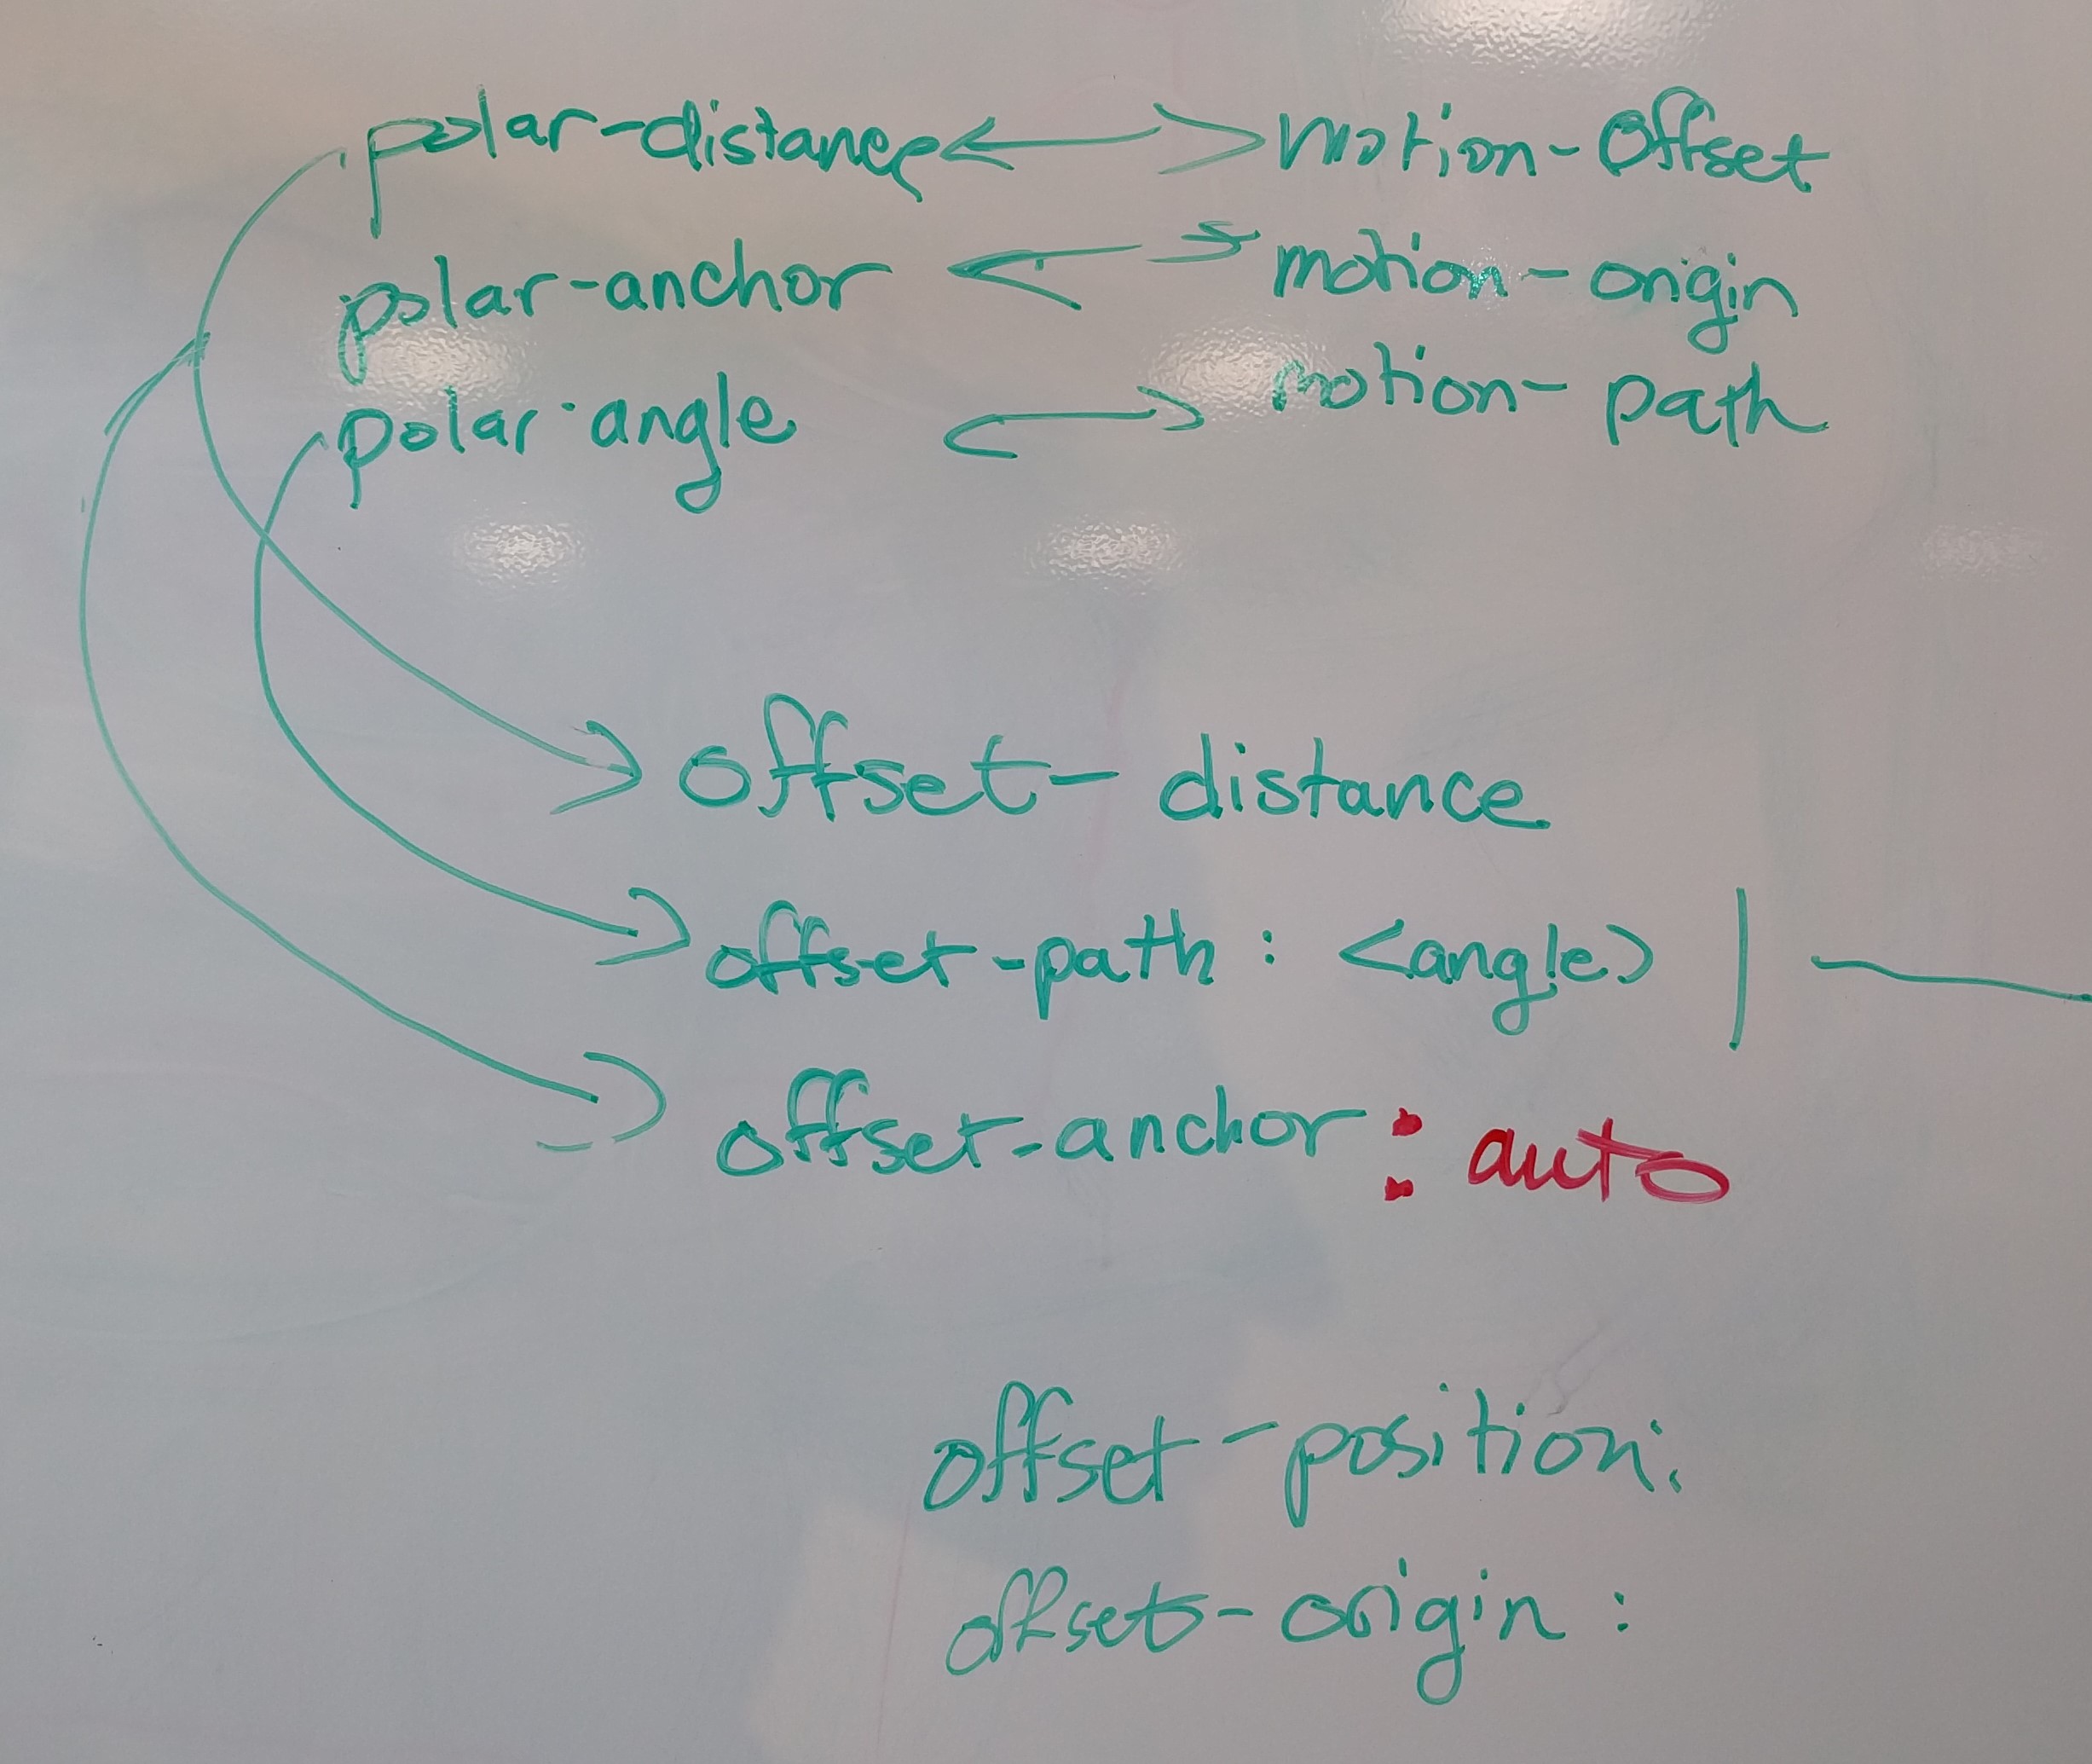 polar-distance motion-Offset
polar-anchor motion-origin
polar-angle motion-path
offset-distance
offset-path: <angle> |
offset-anchor: auto
offset-position:
offset-origin: